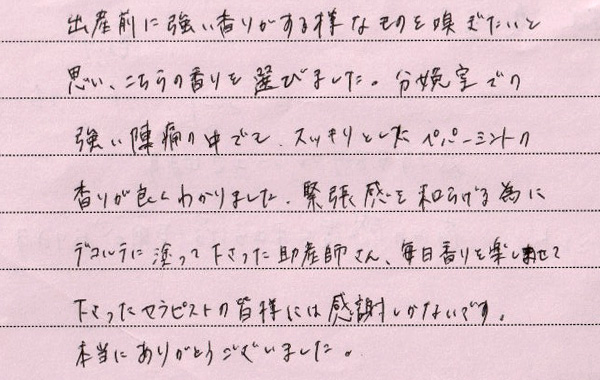 出産前に強い香りがする様なものを嗅ぎたいと
思い、こちらの香りを選びました。分娩室での
強い陣痛の中でも、スッキリとしたペパーミントの
香りが良くわかりました。緊張感を和らげる為に
デコルテに塗って下さった助産師さん、毎日香りを楽しませて
下さったセラピストの皆様には感謝しかないです。
本当にありがとうございました。